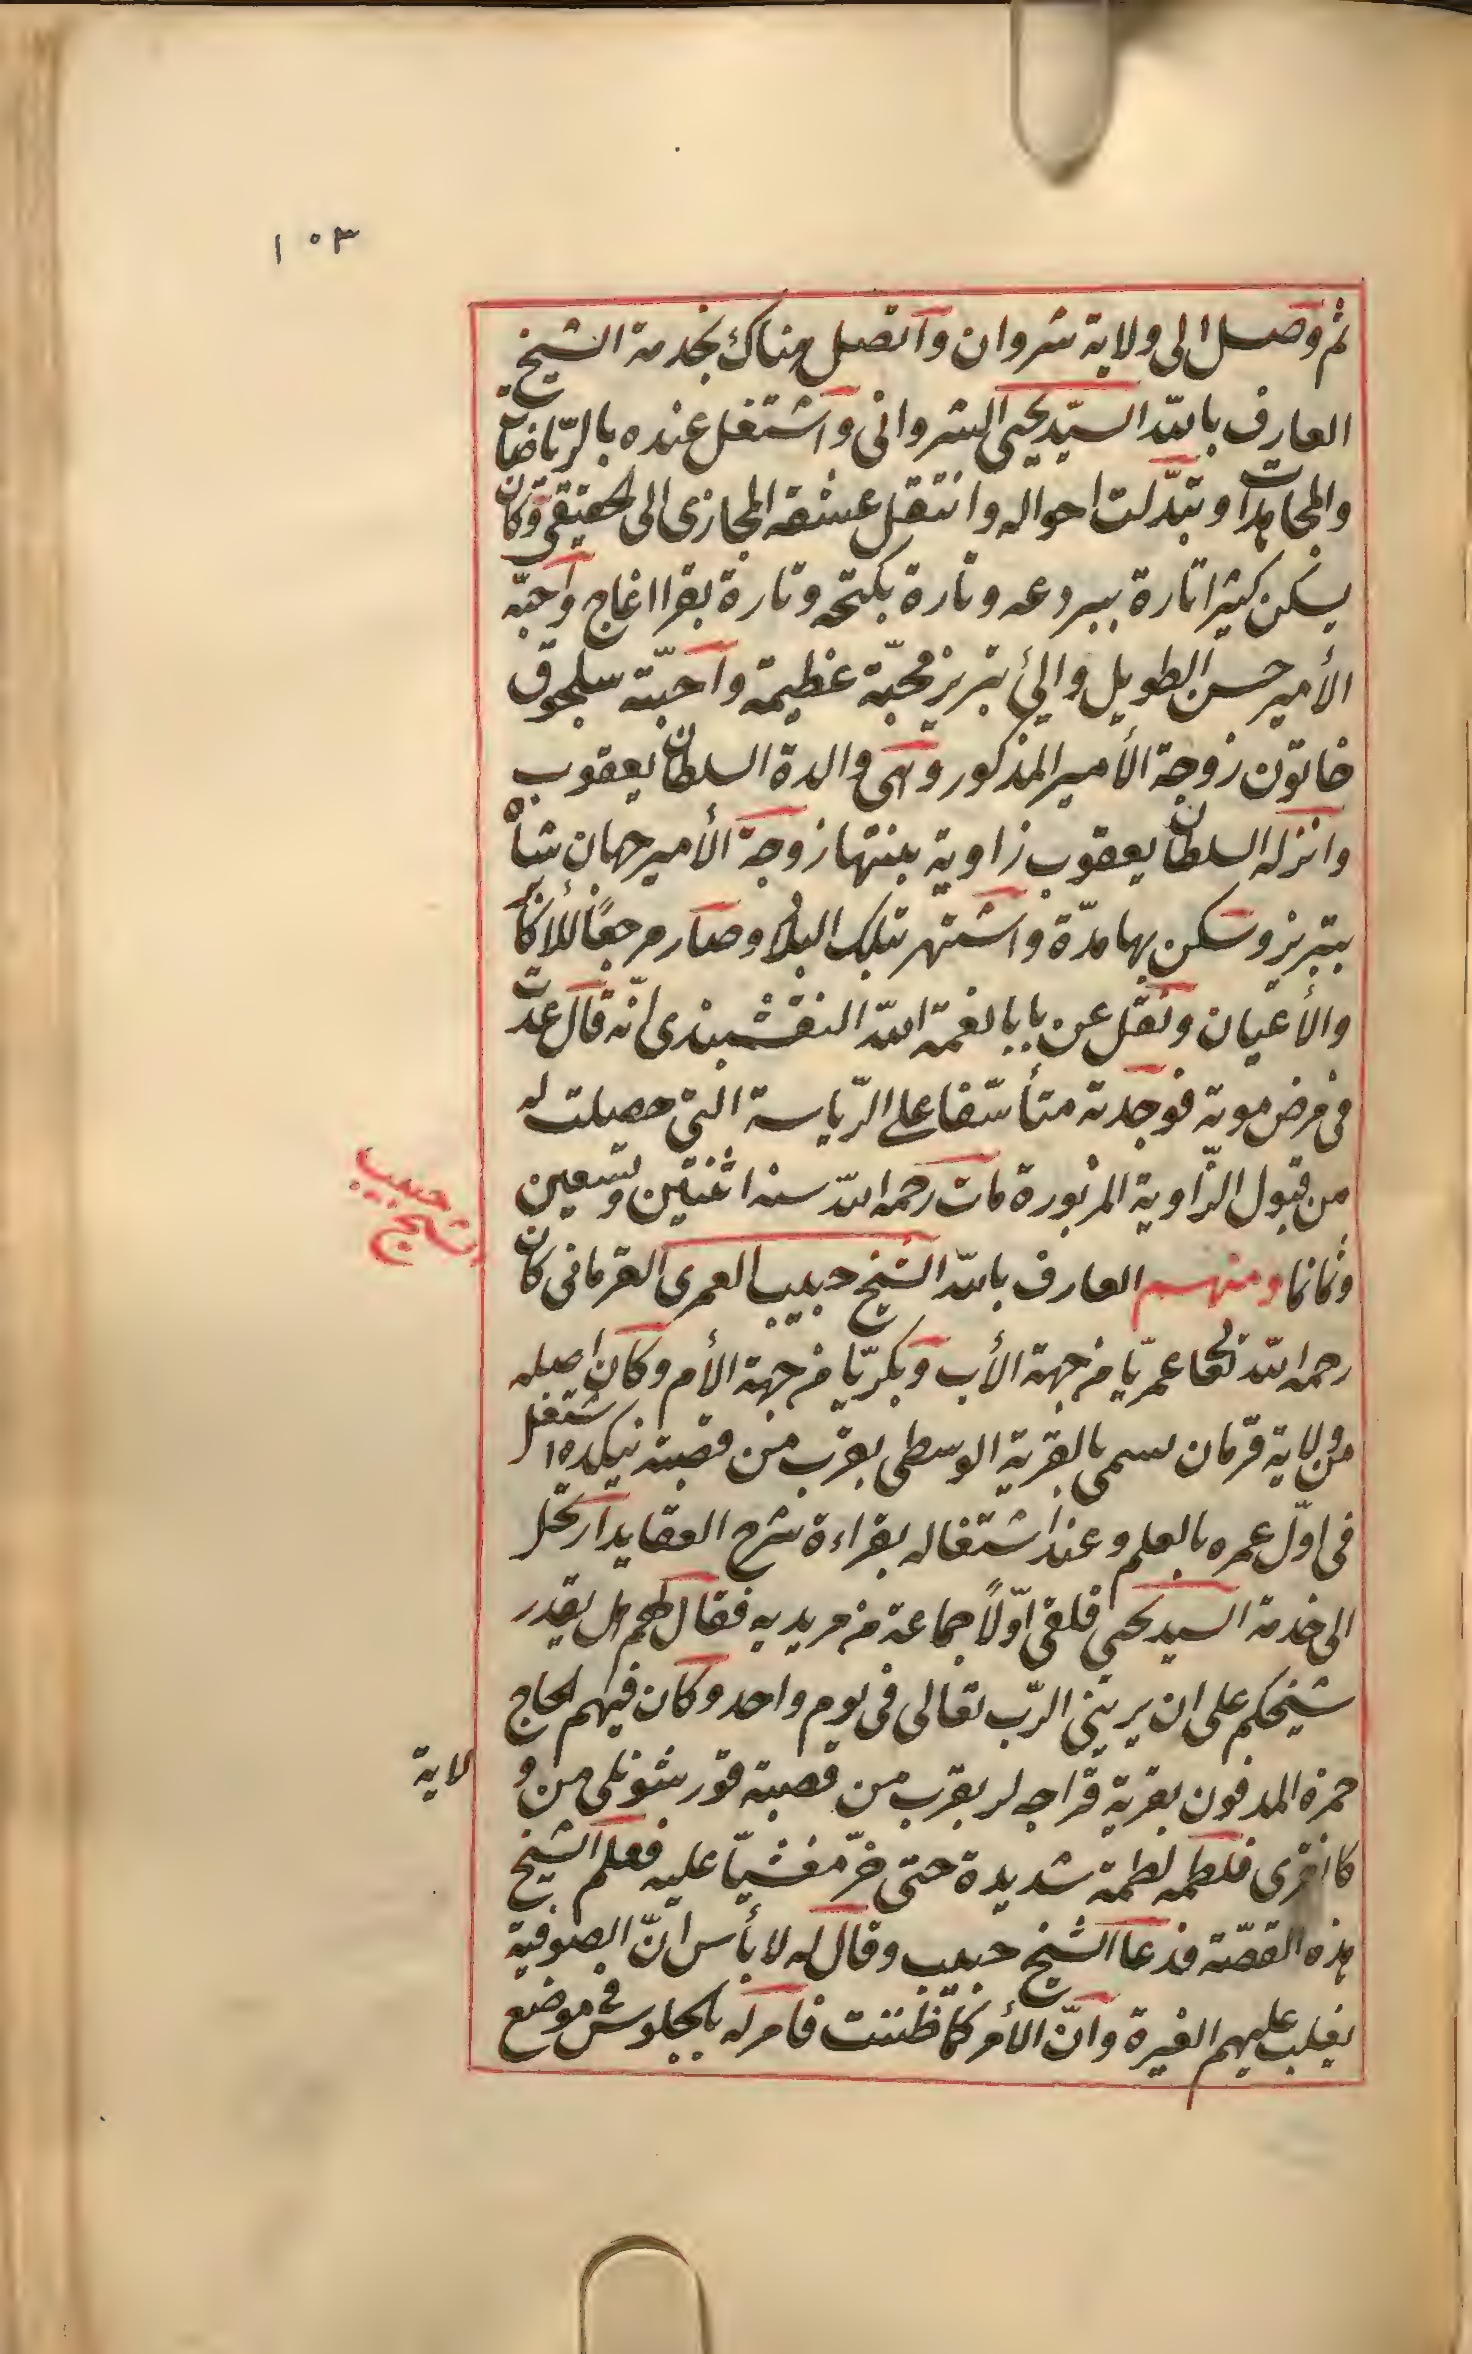 ١٠٣
ثم وصل الى ولاية شروان واتصل هناك بخدمة الشيخ
العارف بالله السيّد يحيى الشروانى واشتغل عنده بالرّياضات
والمجاهدات وتبدّلت احواله وانتقل عشقه المجازى الى الحقيقى وكان
يسكن كثيرا تارة ببردعه وتارة بكنجه وتارة بقرا اغاج واحبّه
الأمير حسن الطويل والئ تبريز محبّة عظيمة واحبّته سلجوق
خاتون زوجة الأمير المذكور وهى والدة السلطان يعقوب
وانزله السلطان يعقوب زاوية بنتها زوجة الأمير جهان شاه
بتبريز وسكن بها مدّة واشتهر بتلك البلاد وصار مرجعًا للأكابر
والأعيان ونقل عن بابا نعمة الله النقشبندى انّه قال عدت
فى مرض موته فوجدته متأسّفا على الرّياسة التى حصلت له
من قبول الزّاوية المزبورة مات رحمه الله سنه اثنتين وتسعين
وثمانما ومنهم العارف بالله الشيخ حبيب العمرى القرمانى كان
الشيخ حبيب
رحمه الله تعالى عمريّا من جهة الأب وبكريّا من جهة الأم وكان اصله
من ولاية قرمان يسمى بالقرية الوسطى بقرب من قصبة نيكده اشتغل
فى اوّل عمره بالعلم وعند اشتغاله بقراءة شرح العقايد ارتحل
الى خدمة السيد يحيى فلقى اوّلًا جماعة من مريديه فقال لهم هل يقدر
شيخكم على ان يرينى الربّ تعالى فى يوم واحد وكان فيهم الحاج
حمزه المدفون بقرية قراجه لر بقرب من قصبة قورشونلى من و
لاية
كانقرى فلطمه لطمة شديدة حتى خرّ مغشيّا عليه فعلم الشيخ
هذه القصّة فدعا الشيخ حبيب وقال له لا بأس انّ الصوفية
يغلب عليهم الغيرة وانّ الأمر كما ظننت فامر له بالجلوس فى موضع